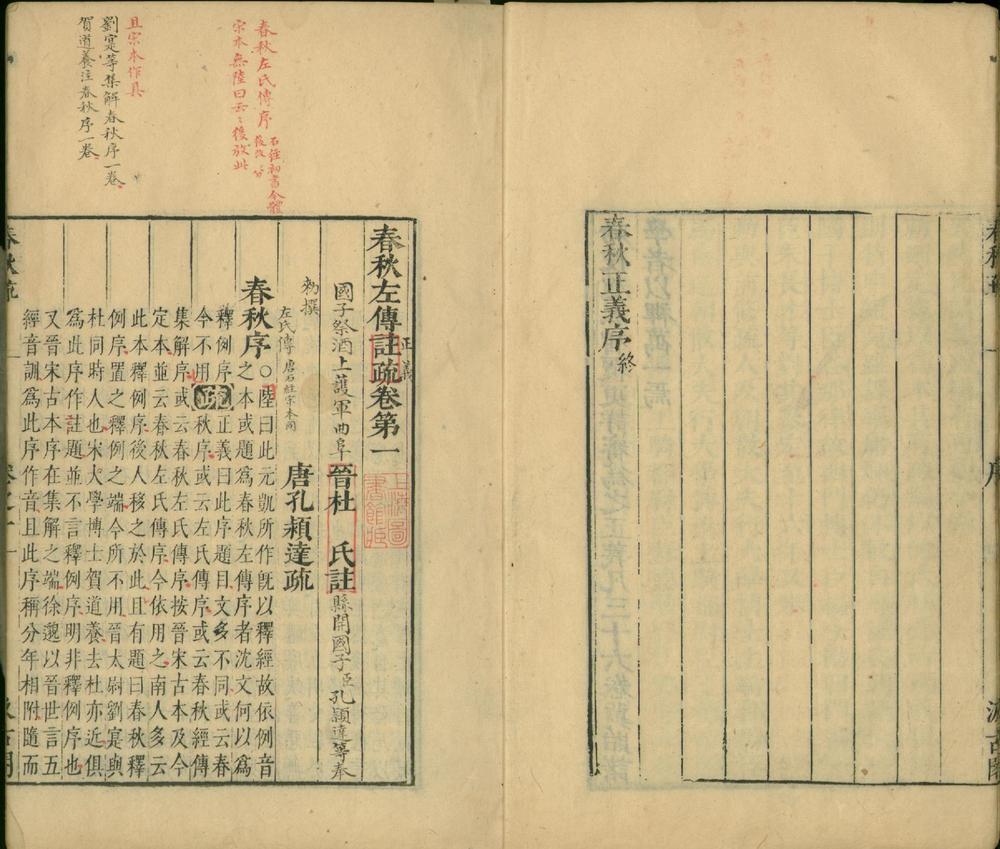 春秋正義序終
春秋左氏傳序石經初書今體後改八分
宋本無陸曰云々後放此
且宋本作具
劉寔等集解春秋序一卷
賀道養注春秋序一卷
春秋左傳註疏卷第一
正義
國子祭酒上護軍曲阜
晉杜氏註
縣開國子臣孔穎達等奉
勑撰
唐孔穎達疏
左氏傳唐石經宋本同
春秋序○陸曰此元凱所作旣以釋經故依例音
之本或題爲春秋左傳序者沈文何以爲
釋例序
今不用疏正義曰此序題目文多不同或云春
秋序或云左氏傳序或云春秋經傳
集解序或云春秋左氏傳序按晉宋古本及今
定本並云春秋左氏傳序今依用之南人多云
此本釋例序後人移之於此且有題曰春秋釋
例序置之釋例之端今所不用晉太尉劉寔與
杜同時人也宋大學博士賀道養去杜亦近俱
爲此序作註題並不言釋例序明非釋例序也
又晉宋古本序在集解之端徐邈以晉世言五
經音訓爲此序作音且此序稱分年相附隨而
上海圖書館藏